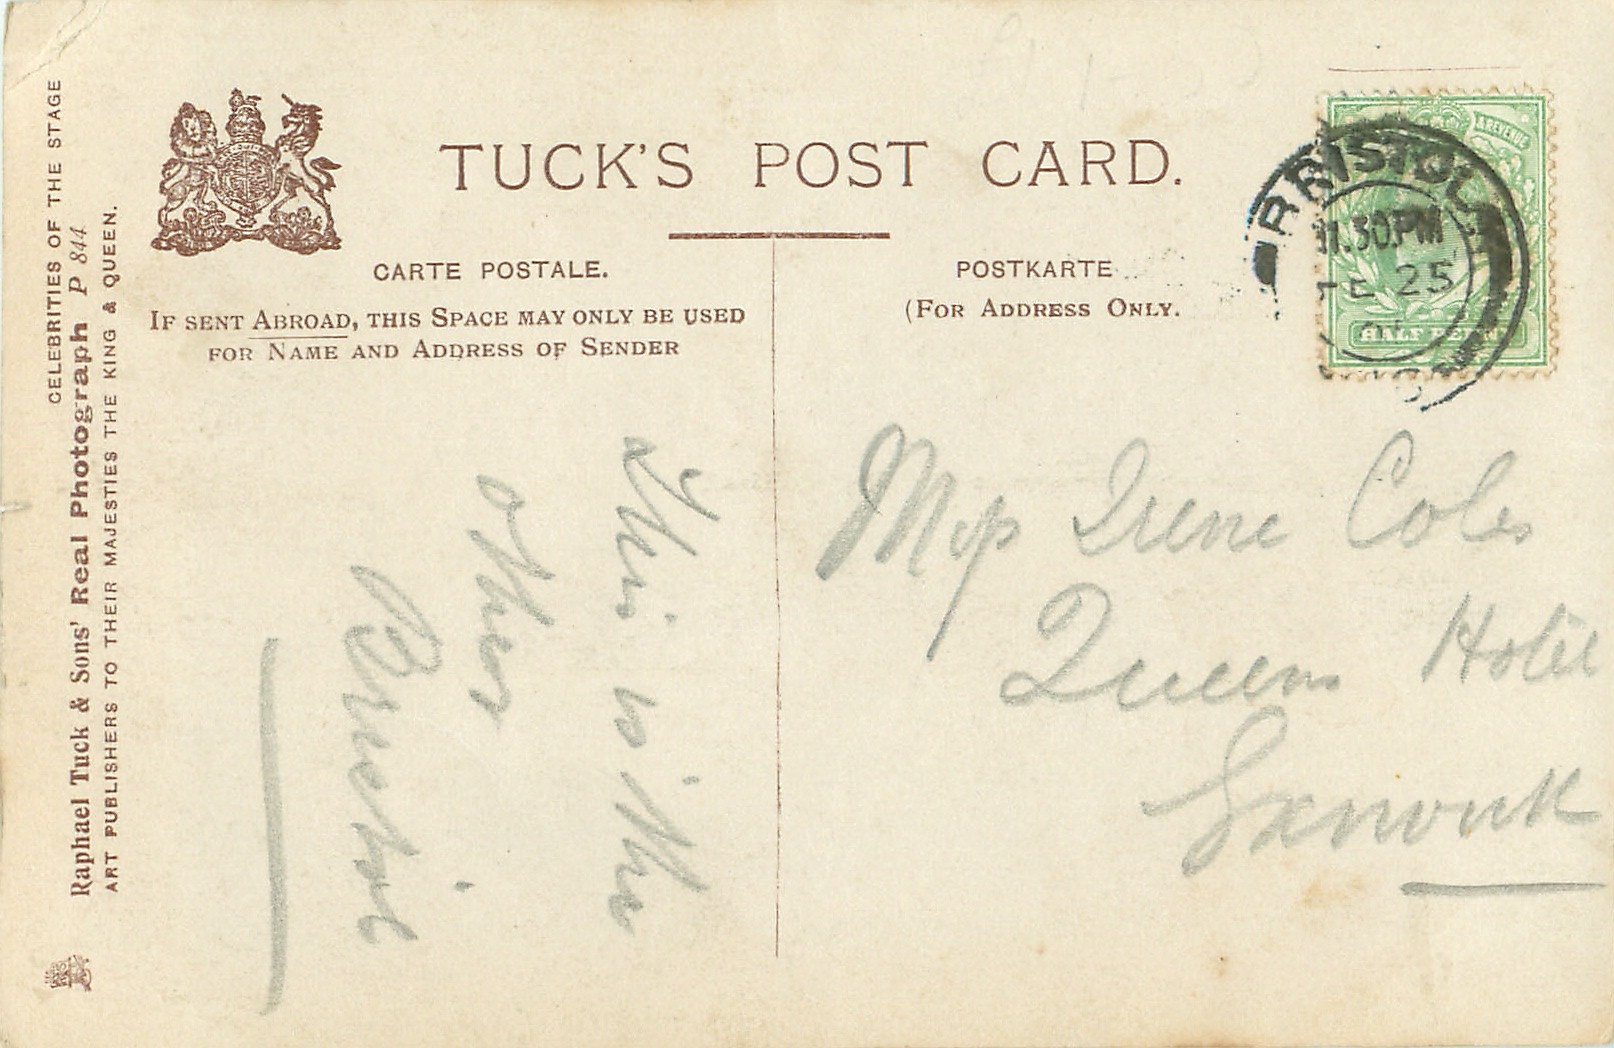 CELEBRITIES OF THE STAGE
Raphael Tuck & Sons' Real Photograph P 844
ART PUBLISHERS TO THEIR MAJESTIES THE KING & QUEEN.
TUCK'S POST CARD.
CARTE POSTALE.
IF SENT ABROAD, THIS SPACE MAY ONLY BE USED
FOR NAME AND ADDRESS OF SENDER
POSTKARTE
(FOR ADDRESS ONLY.
& REVENUE
BRISTOL
11.30PM
FE 25
HALF PENNY
This is the
other
Bristol
Miss Irene Coles
Queens Hotel